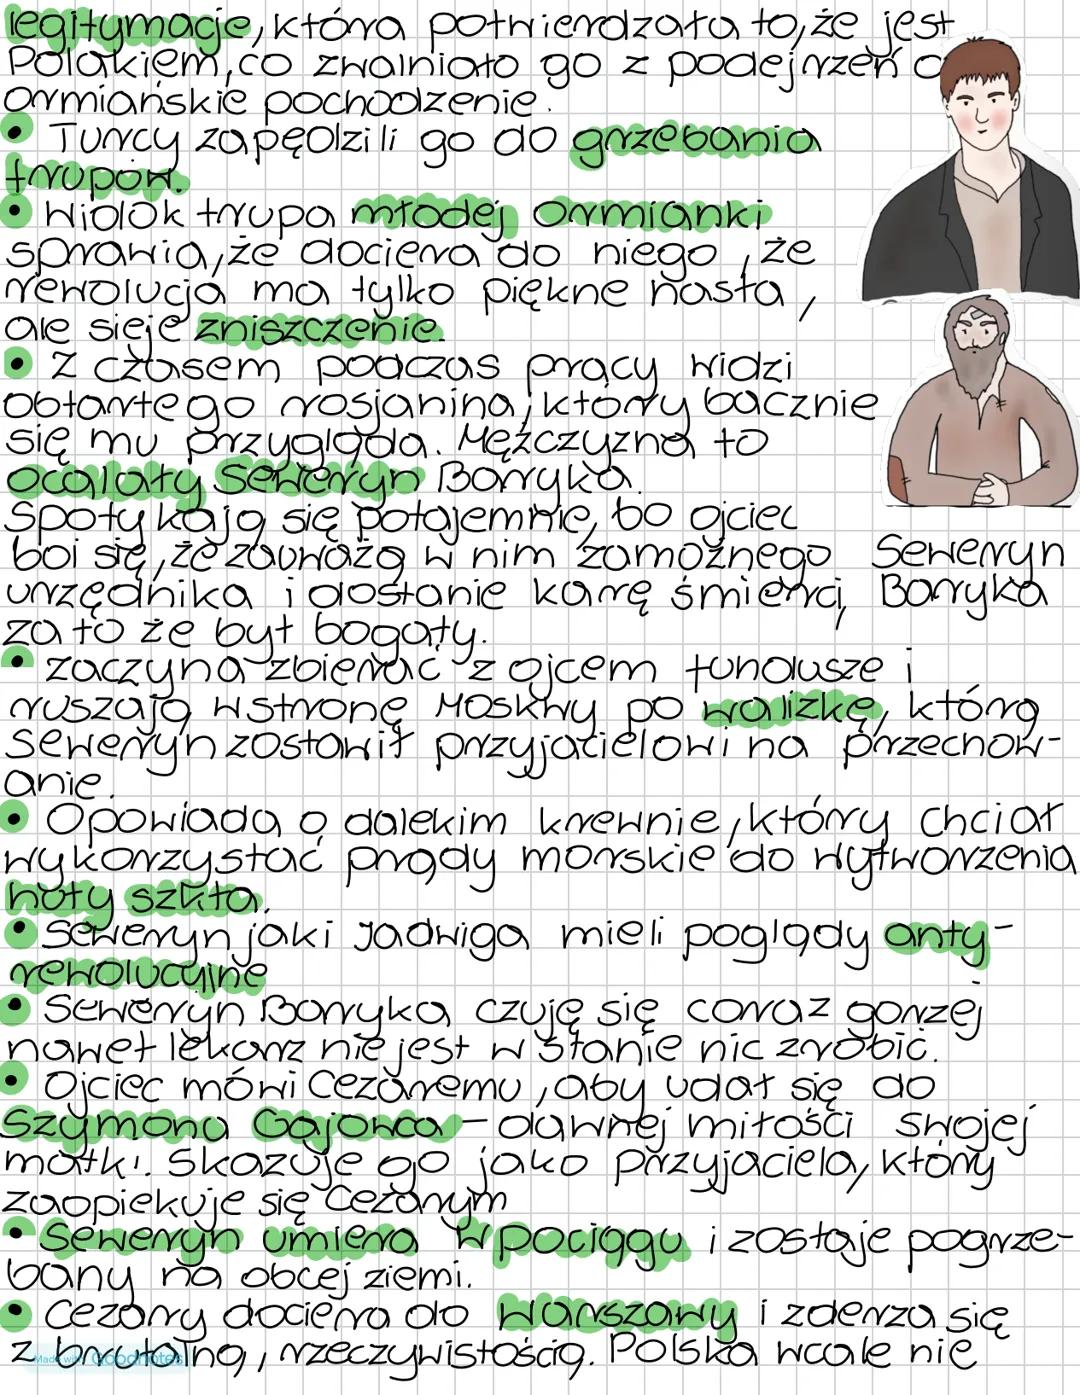 legitymację, która potwierdzała to, że jest
Polakiem, co zwalniało go z podejrzeń o
ormiańskie pochodzenie.
• Turcy zapędzili go do grzebania
trupów.
• Widok trupa młodej Ormianki
sprawia, że dociera do niego, że
rewolucja ma tylko piękne hasła,
ale sieje zniszczenie.
• Z czasem podczas pracy widzi
obtartego rosjanina, który bacznie
się mu przygląda. Mężczyzna to
ocalały Seweryn Baryka.
Spotykają się potajemnie, bo ojciec
boi się, że zauważą w nim zamożnego
urzędnika i dostanie karę śmierci,
za to że był bogaty.
Seweryn
Baryka
• zaczyna zbierać z ojcem fundusze i
ruszają w stronę Moskwy po walizkę, którą
Seweryn zostawił przyjacielowi na przechow-
anie.
• Opowiada o dalekim krewnie, który chciał
wykorzystać prądy morskie do wytworzenia
huty szkła.
• Seweryn jak i Jadwiga mieli poglądy anty-
rewolucyjne
• Seweryn Baryka czuję się coraz gorzej
nawet lekarz nie jest w stanie nic zrobić.
• Ojciec mówi Cezaremu, aby udał się do
Szymona Gajowca - dawnej miłości swojej
matki. Skazuje go jako przyjaciela, który
zaopiekuje się Cezarym
• Seweryn umiera w pociągu i zostaje pogrze-
bany na obcej ziemi.
• Cezary dociera do Warszawy i zderza się
z brutalną, rzeczywistością. Polska wcale nie
Made with Goodnotes